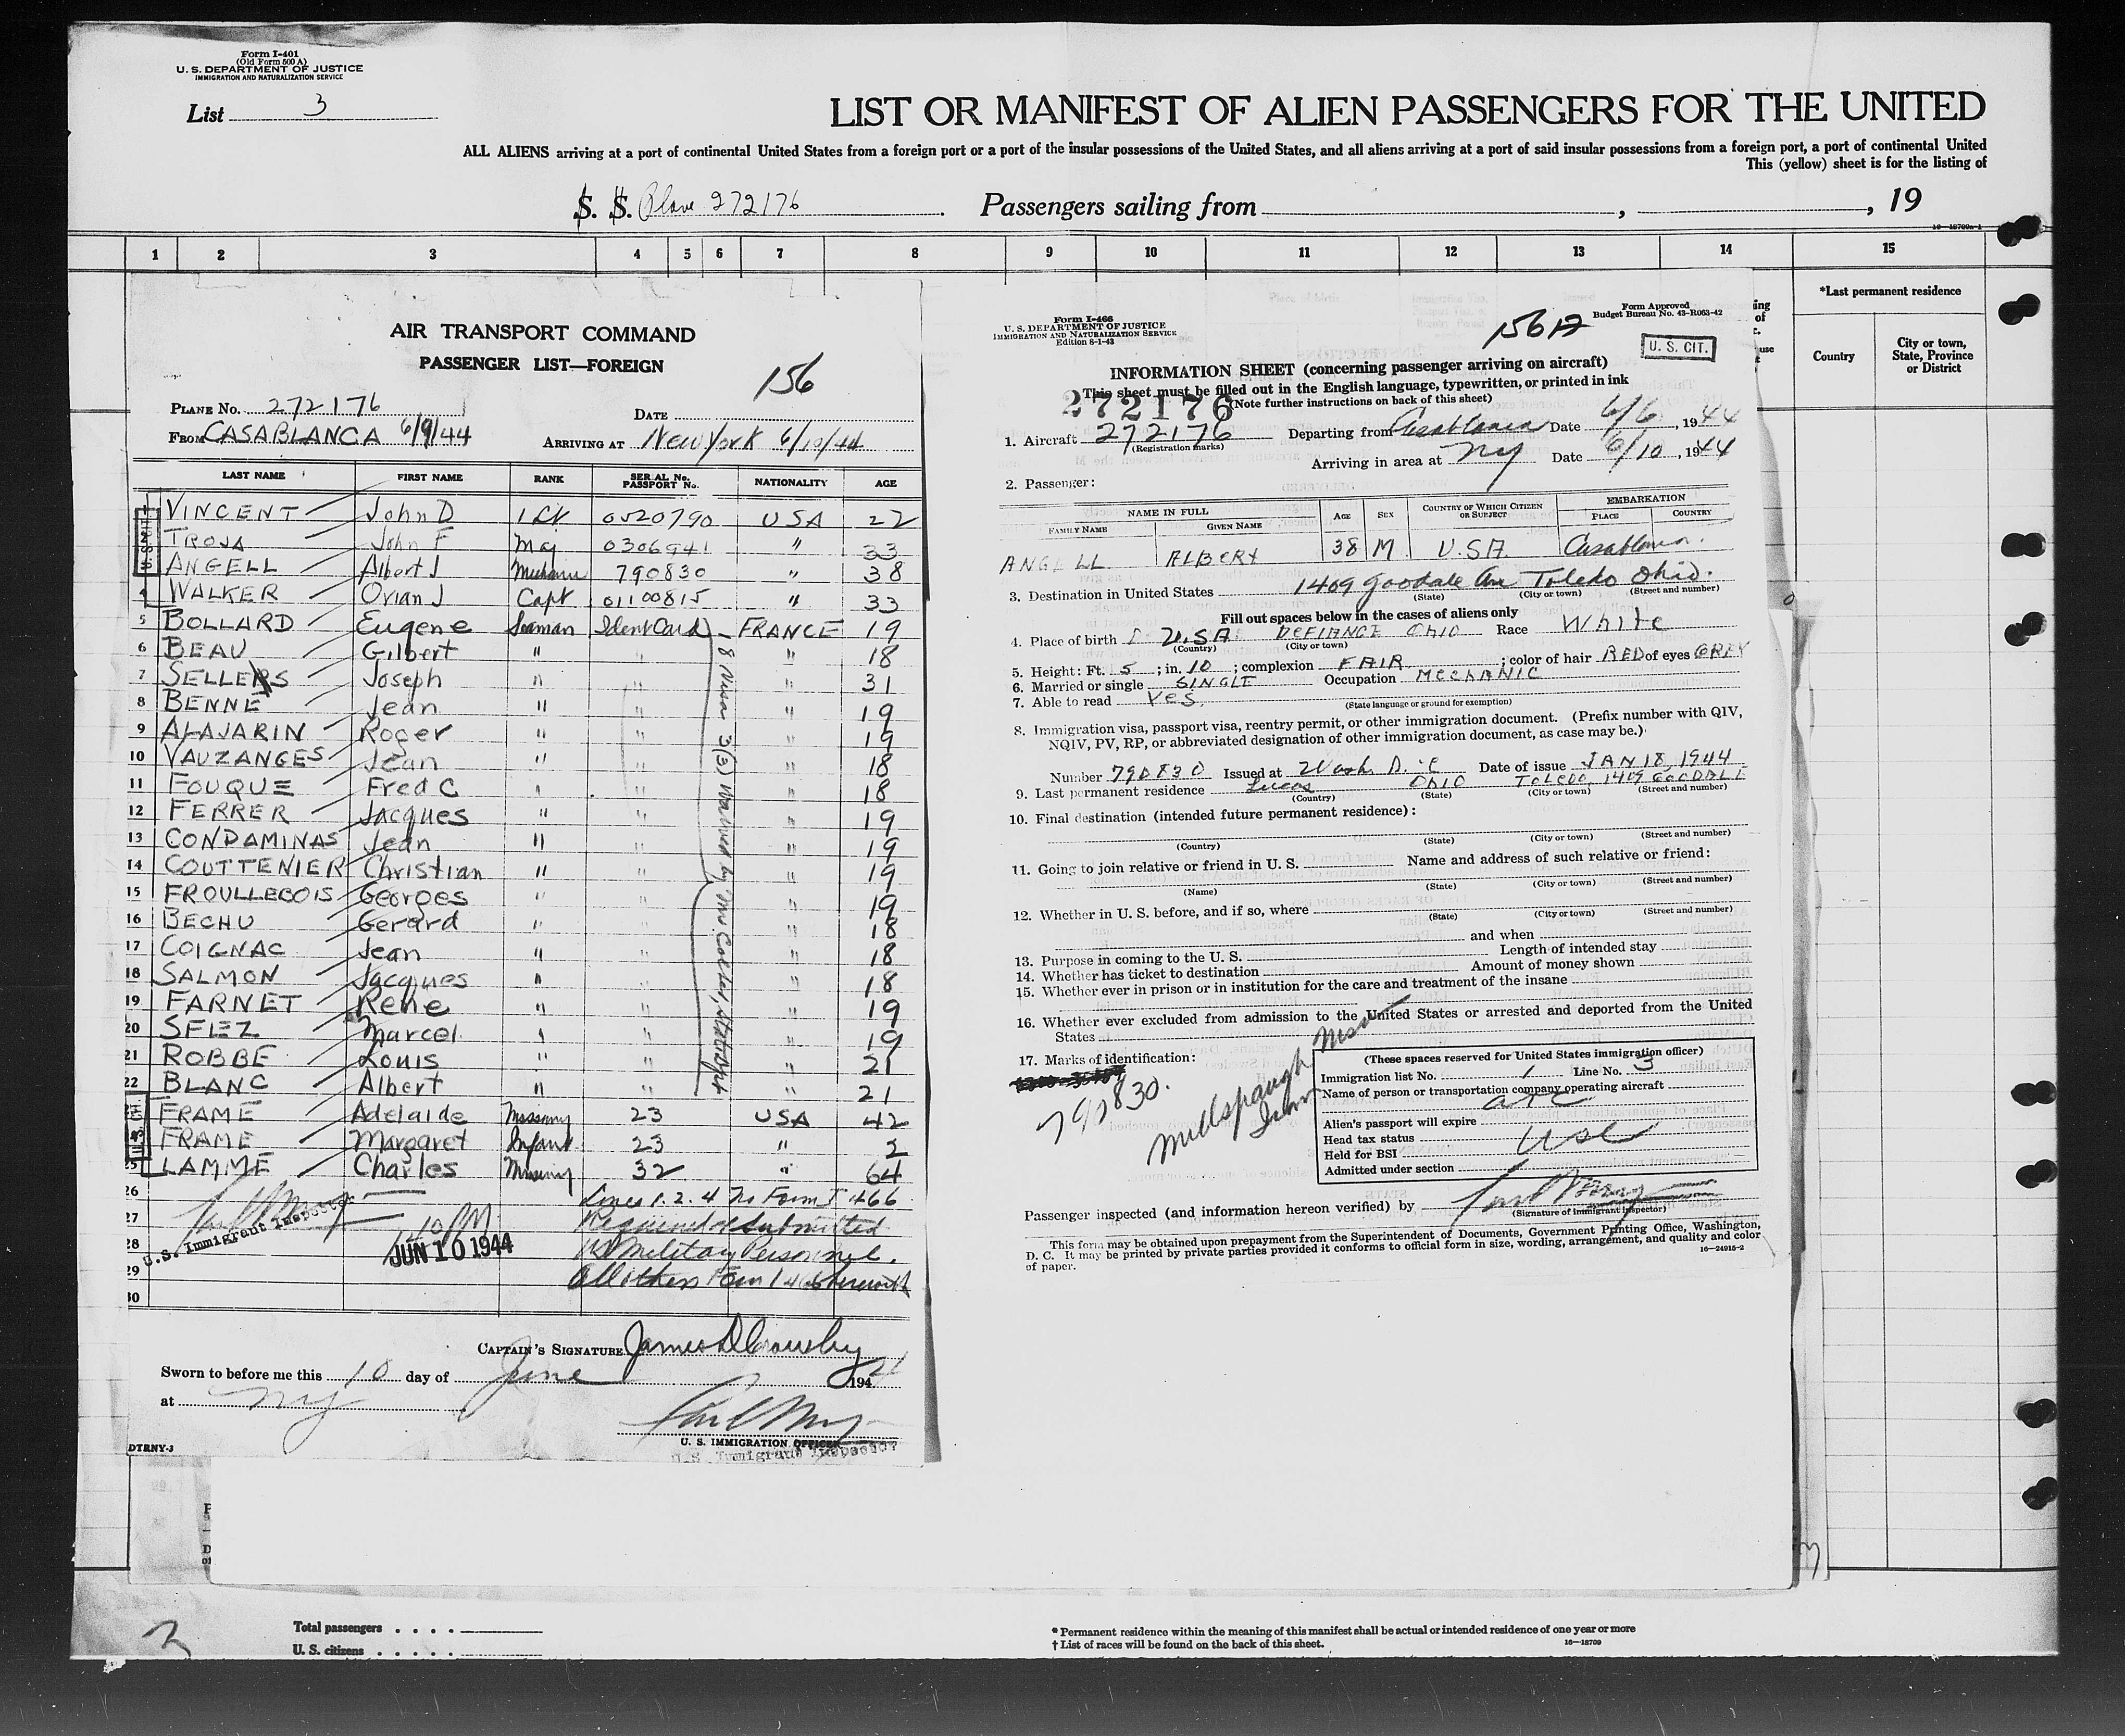 Form I-401
(Old Form 500 A)
U. S. DEPARTMENT OF JUSTICE
IMMIGRATION AND NATURALIZATION SERVICE
List 3
LIST OR MANIFEST OF ALIEN PASSENGERS FOR THE UNITED
ALL ALIENS arriving at a port of continental United States from a foreign port or a port of the insular possessions of the United States, and all aliens arriving at a port of said insular possessions from a foreign port, a port of continental United
This (yellow) sheet is for the listing of
S. S. Plane 272176 Passengers sailing from , , 19
1 2 3 4 5 6 7 8 9 10 11 12 13 14 15
*Last permanent residence
Country City or town, State, Province or District
AIR TRANSPORT COMMAND
PASSENGER LIST—FOREIGN
156
PLANE No. 272176 DATE
FROM CASABLANCA 6/9/44 ARRIVING AT New York 6/10/44
LAST NAME FIRST NAME RANK SERIAL No. PASSPORT No. NATIONALITY AGE
1 VINCENT John D 1 Lt 0520790 USA 22
2 TROJA John F Maj 0306941 " 33
3 ANGELL Albert J 790830 " 38
4 WALKER Orian J Capt 01100815 " 33
5 BOLLARD Eugene Seaman Ident Card FRANCE 19
6 BEAU Gilbert " " " 18
7 SELLERS Joseph " " " 31
8 BENNE Jean " " " 19
9 ALAJARIN Roger " " " 19
10 VAUZANGES Jean " " " 18
11 FOUQUE Fred C " " " 18
12 FERRER Jacques " " " 19
13 CONDAMINAS Jean " " " 19
14 COUTTENIER Christian " " " 19
15 FROULLEBOIS Georges " " " 19
16 BECHU Gerard " " " 18
17 COIGNAC Jean " " " 18
18 SALMON Jacques " " " 18
19 FARNET Rene " " " 19
20 SFEZ Marcel " " " 19
21 ROBBE Louis " " " 21
22 BLANC Albert " " " 21
FRAME Adelaide Missionary 23 USA 42
FRAME Margaret Infant 23 " 2
25 LAMME Charles Missionary 32 " 64
26 Lines 1. 2. 4 No Form I 466
27 Required or Submitted
28 Military Personnel.
29 All others Form I 466 herewith
30
8 Visa 3(3) Waived by
U.S. Immigrant Inspector
10 PM
JUN 10 1944
CAPTAIN'S SIGNATURE James D Crowley
Sworn to before me this 10 day of June 1944
at NY
U. S. IMMIGRATION OFFICER
U.S. Immigrant Inspector
DTRNY-3
Form I-466
U. S. DEPARTMENT OF JUSTICE
IMMIGRATION AND NATURALIZATION SERVICE
Edition 8-1-43
156A
Form Approved
Budget Bureau No. 43-R063-42
U. S. CIT.
INFORMATION SHEET (concerning passenger arriving on aircraft)
This sheet must be filled out in the English language, typewritten, or printed in ink
(Note further instructions on back of this sheet)
272176
1. Aircraft 272176 Departing from Casablanca Date 6/6, 1944
(Registration marks)
Arriving in area at NY Date 6/10, 1944
2. Passenger:
NAME IN FULL AGE SEX COUNTRY OF WHICH CITIZEN OR SUBJECT EMBARKATION
FAMILY NAME GIVEN NAME PLACE COUNTRY
ANGELL ALBERT 38 M U.S.A Casablanca.
3. Destination in United States 1409 Goodale Ave Toledo Ohio.
(State) (City or town) (Street and number)
Fill out spaces below in the cases of aliens only
4. Place of birth U.S.A. DEFIANCE OHIO Race White
(Country) (City or town)
5. Height: Ft. 5; in. 10; complexion FAIR; color of hair RED of eyes GREY
6. Married or single SINGLE Occupation MECHANIC
7. Able to read YES
(State language or ground for exemption)
8. Immigration visa, passport visa, reentry permit, or other immigration document. (Prefix number with QIV,
NQIV, PV, RP, or abbreviated designation of other immigration document, as case may be.)
Number 790830 Issued at Wash D.C Date of issue JAN 18, 1944
9. Last permanent residence Lucas OHIO TOLEDO, 1409 GOODALE
(Country) (State) (City or town) (Street and number)
10. Final destination (intended future permanent residence):
(Country) (State) (City or town) (Street and number)
11. Going to join relative or friend in U. S. Name and address of such relative or friend:
(Name) (State) (City or town) (Street and number)
12. Whether in U. S. before, and if so, where
(State) (City or town) (Street and number)
and when
13. Purpose in coming to the U. S. Length of intended stay
14. Whether has ticket to destination Amount of money shown
15. Whether ever in prison or in institution for the care and treatment of the insane
16. Whether ever excluded from admission to the United States or arrested and deported from the United
States
17. Marks of identification:
790830.
Millspaugh Mission
Iran
(These spaces reserved for United States immigration officer)
Immigration list No. 1 Line No. 3
Name of person or transportation company operating aircraft ATC
Alien's passport will expire
Head tax status USC
Held for BSI
Admitted under section
Passenger inspected (and information hereon verified) by
(Signature of immigrant inspector)
This form may be obtained upon prepayment from the Superintendent of Documents, Government Printing Office, Washington,
D. C. It may be printed by private parties provided it conforms to official form in size, wording, arrangement, and quality and color
of paper.
16—24915-2
Total passengers . . . .
U. S. citizens . . . . .
* Permanent residence within the meaning of this manifest shall be actual or intended residence of one year or more
† List of races will be found on the back of this sheet.
16—18709